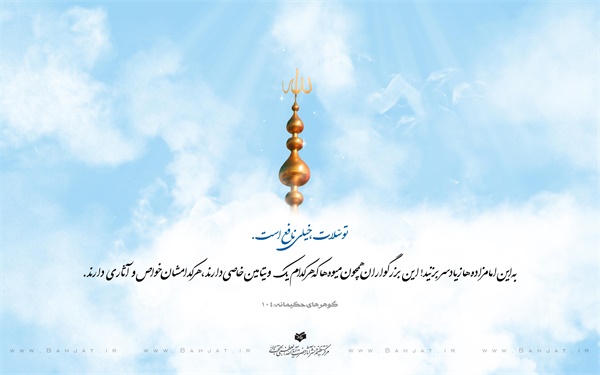 الله
توسّلات، خیلی نافع است.
به این امامزاده‌ها زیاد سر بزنید! این بزرگواران همچون میوه‌ها که هرکدام یک ویتامین خاصی دارند، هرکدامشان خواص و آثاری دارند.
گوهرهای حکیمانه: ۱۰۴
www.Bahjat.ir www.Bahjat.ir www.Bahjat.ir www.Bahjat.ir